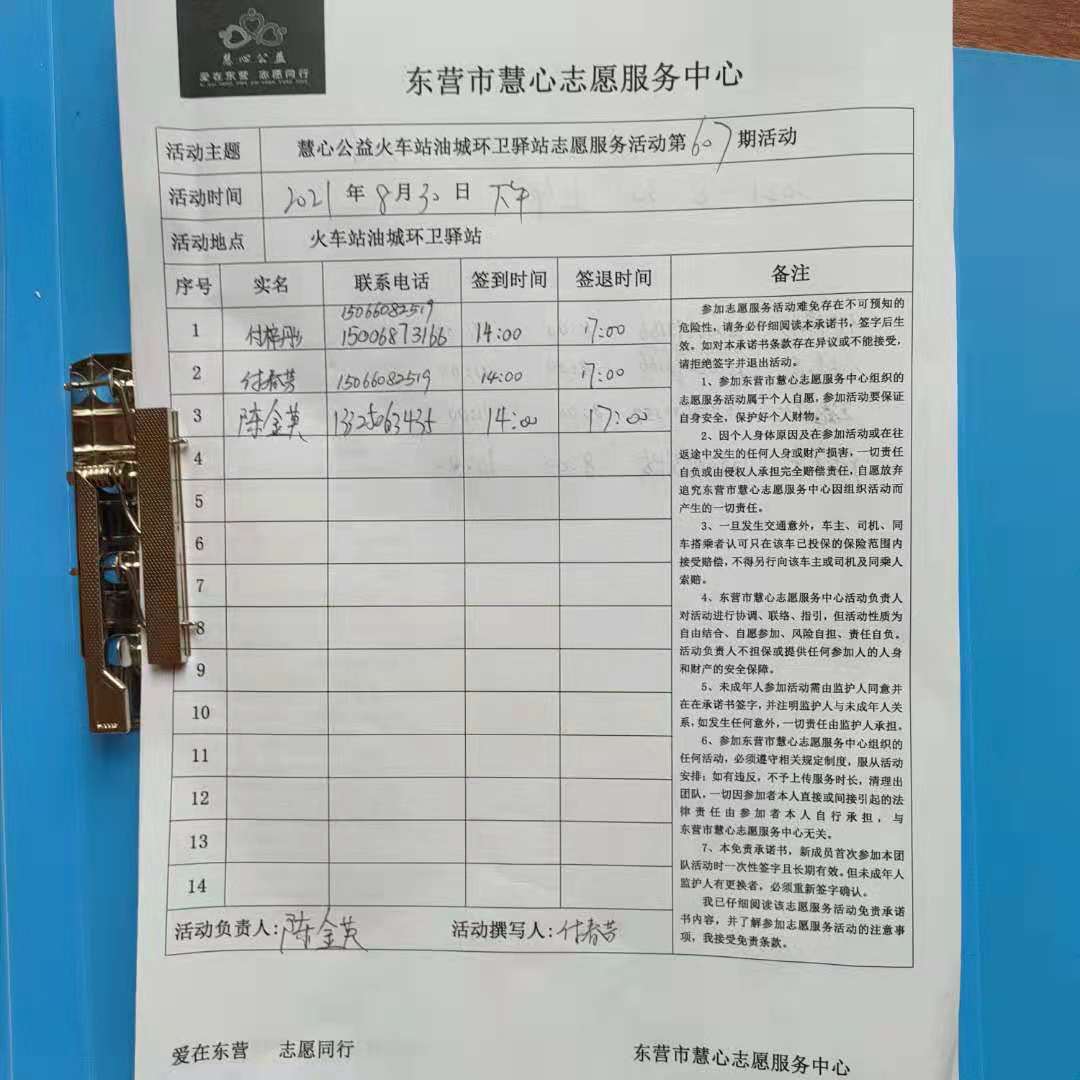 慧心公益
爱在东营 志愿同行
东营市慧心志愿服务中心
活动主题 慧心公益火车站油城环卫驿站志愿服务活动第607期活动
活动时间 2021年8月30日 下午
活动地点 火车站油城环卫驿站
序号 实名 联系电话 签到时间 签退时间 备注
15066082519
1 付梓彤 15006873166 14:00 17:00
2 付春芳 15066082519 14:00 17:00
3 陈金英 13325063435 14:00 17:00
4
5
6
7
8
9
10
11
12
13
14
参加志愿服务活动难免存在不可预知的
危险性,请务必仔细阅读本承诺书,签字后生
效。如对本承诺书条款存在异议或不能接受,
请拒绝签字并退出活动。
1、参加东营市慧心志愿服务中心组织的
志愿服务活动属于个人自愿,参加活动要保证
自身安全,保护好个人财物。
2、因个人身体原因及在参加活动或在往
返途中发生的任何人身或财产损害,一切责任
自负或由侵权人承担完全赔偿责任,自愿放弃
追究东营市慧心志愿服务中心因组织活动而
产生的一切责任。
3、一旦发生交通意外,车主、司机、同
车搭乘者认可只在该车已投保的保险范围内
接受赔偿,不得另行向该车主或司机及同乘人
索赔。
4、东营市慧心志愿服务中心活动负责人
对活动进行协调、联络、指引,但活动性质为
自由结合、自愿参加、风险自担、责任自负。
活动负责人不担保或提供任何参加人的人身
和财产的安全保障。
5、未成年人参加活动需由监护人同意并
在在承诺书签字,并注明监护人与未成年人关
系,如发生任何意外,一切责任由监护人承担。
6、参加东营市慧心志愿服务中心组织的
任何活动,必须遵守相关规定制度,服从活动
安排;如有违反,不予上传服务时长,清理出
团队,一切因参加者本人直接或间接引起的法
律责任由参加者本人自行承担,与
东营市慧心志愿服务中心无关。
7、本免责承诺书,新成员首次参加本团
队活动时一次性签字且长期有效。但未成年人
监护人有更换者,必须重新签字确认。
我已仔细阅读该志愿服务活动免责承诺
书内容,并了解参加志愿服务活动的注意事
项,我接受免责条款。
活动负责人:陈金英 活动撰写人:付春芳
爱在东营 志愿同行 东营市慧心志愿服务中心